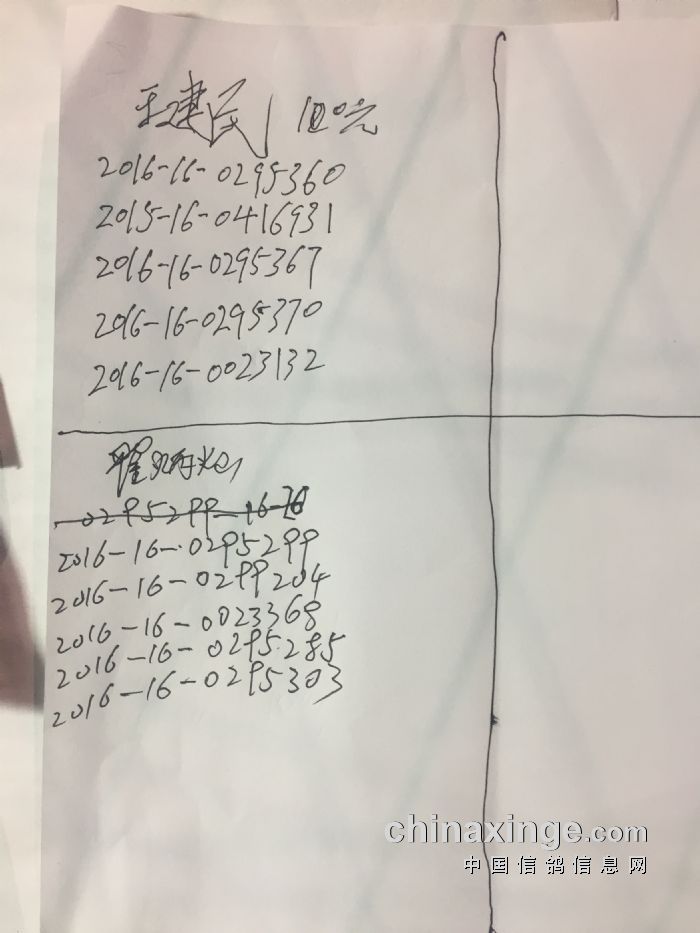 王建民 100元
2016-16-0295360
2015-16-0416931
2016-16-0295367
2016-16-0295370
2016-16-0023132
翟
0295299-16-16
2016-16-0295299
2016-16-0299204
2016-16-0023368
2016-16-0295285
2016-16-0295303
chinaxinge.com
中国信鸽信息网